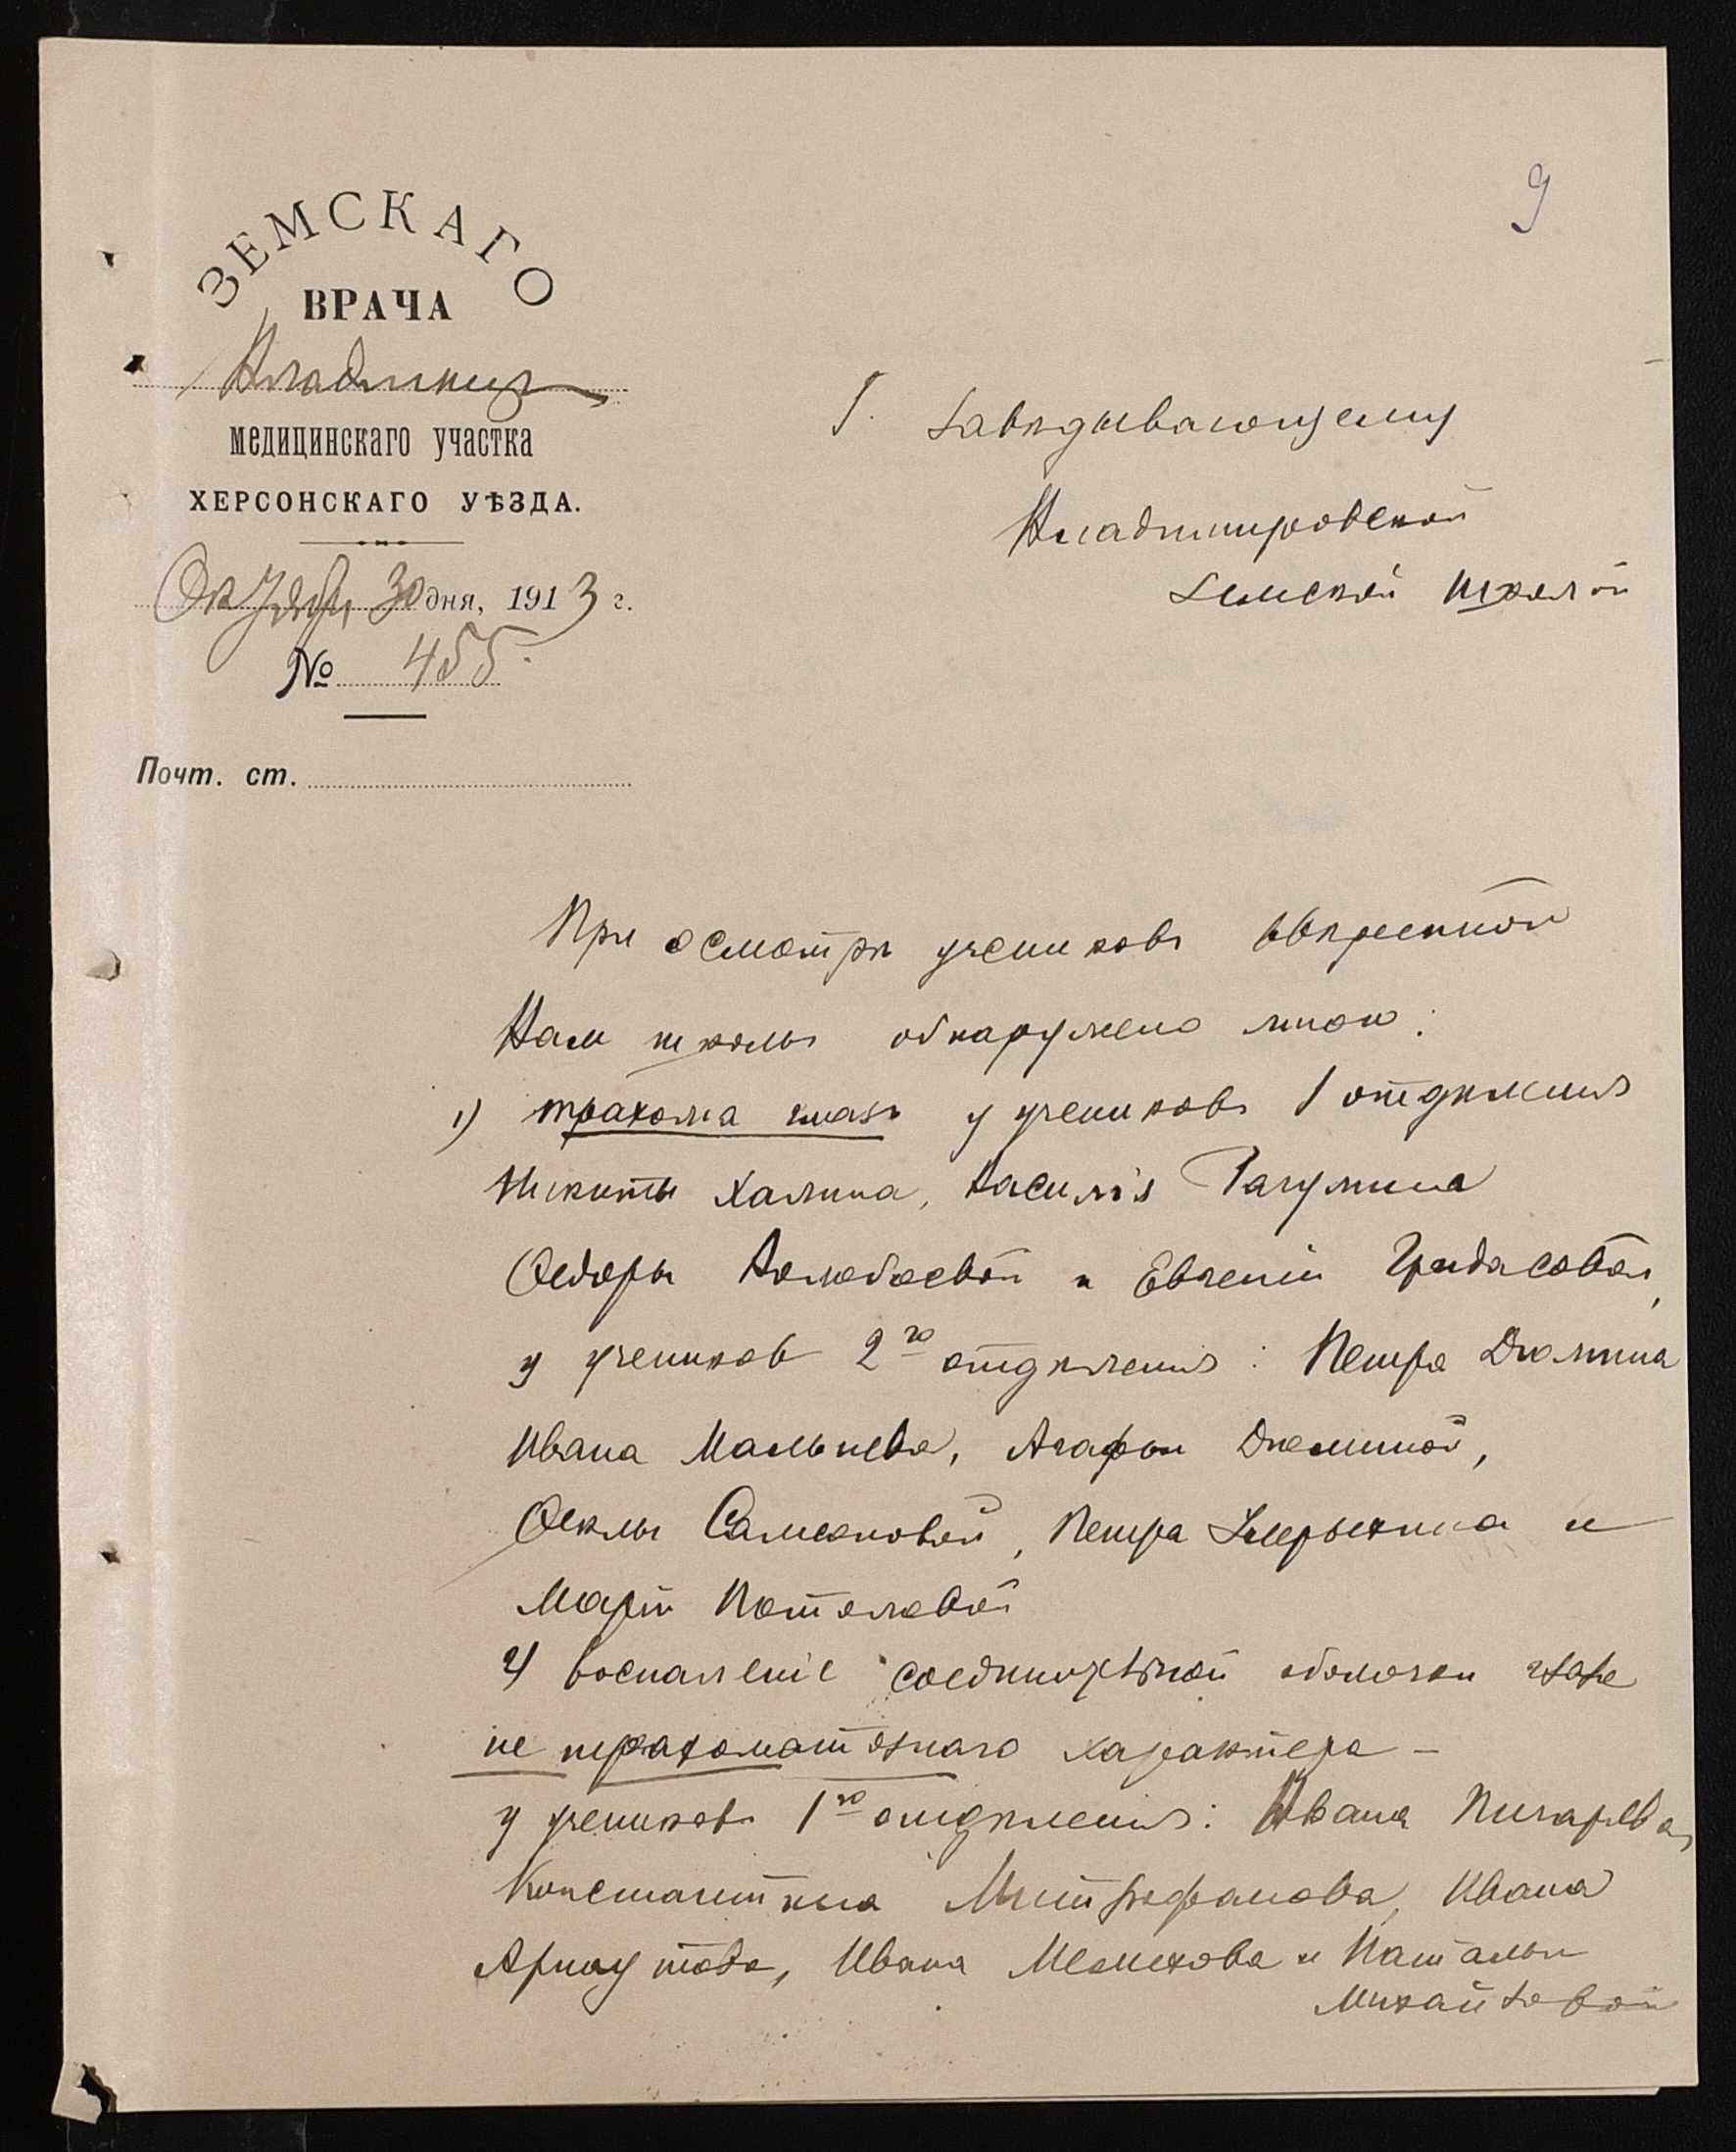 9
ЗЕМСКАГО
ВРАЧА
Владимир
медицинскаго участка
ХЕРСОНСКАГО УѢЗДА.
Октября 30 дня, 1913 г.
№ 455.
Почт. ст.
Г. Завѣдывающему
Владимировской
Земской школой
При осмотрѣ учениковъ ввѣренной
Вам школы обнаружено мною:
1) трахома глазъ у учениковъ 1 отдѣленія
Никиты Халина, Василія
Ѳедоры и Евгеніи
у учеников 2го отдѣленія: Петра Дюмина
Ивана Мальцева, Агафьи Дюминой,
Ѳеклы Самсоновой, Петра и
Маріи Потоловой
2) воспаленіе соединительной оболочки глаз
не трахоматознаго характера -
у учениковъ 1го отдѣленія: Ивана Пигарева,
Константина Митрофанова, Ивана
Арнаутова, Ивана и Натальи
Михайловой